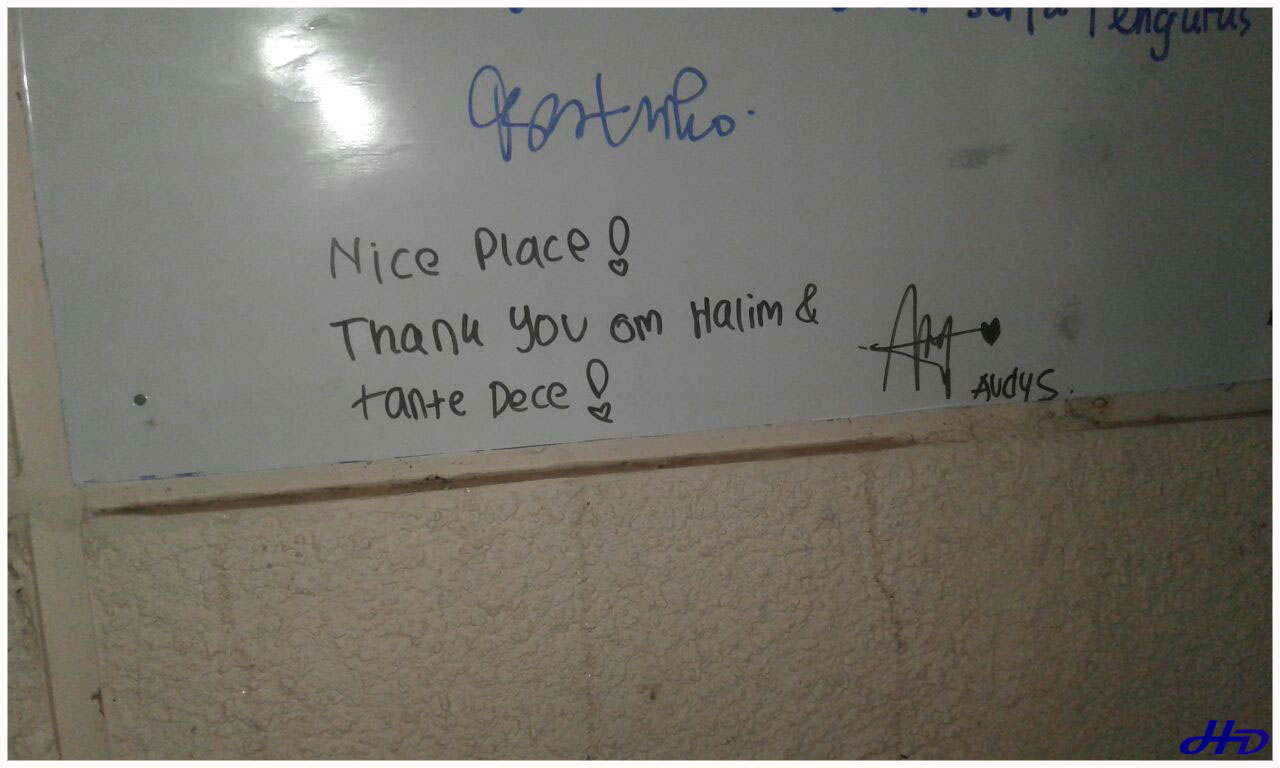 serta Pengurus
Nice Place!
Thank you om Halim &
tante Dece!
Audys.
HD